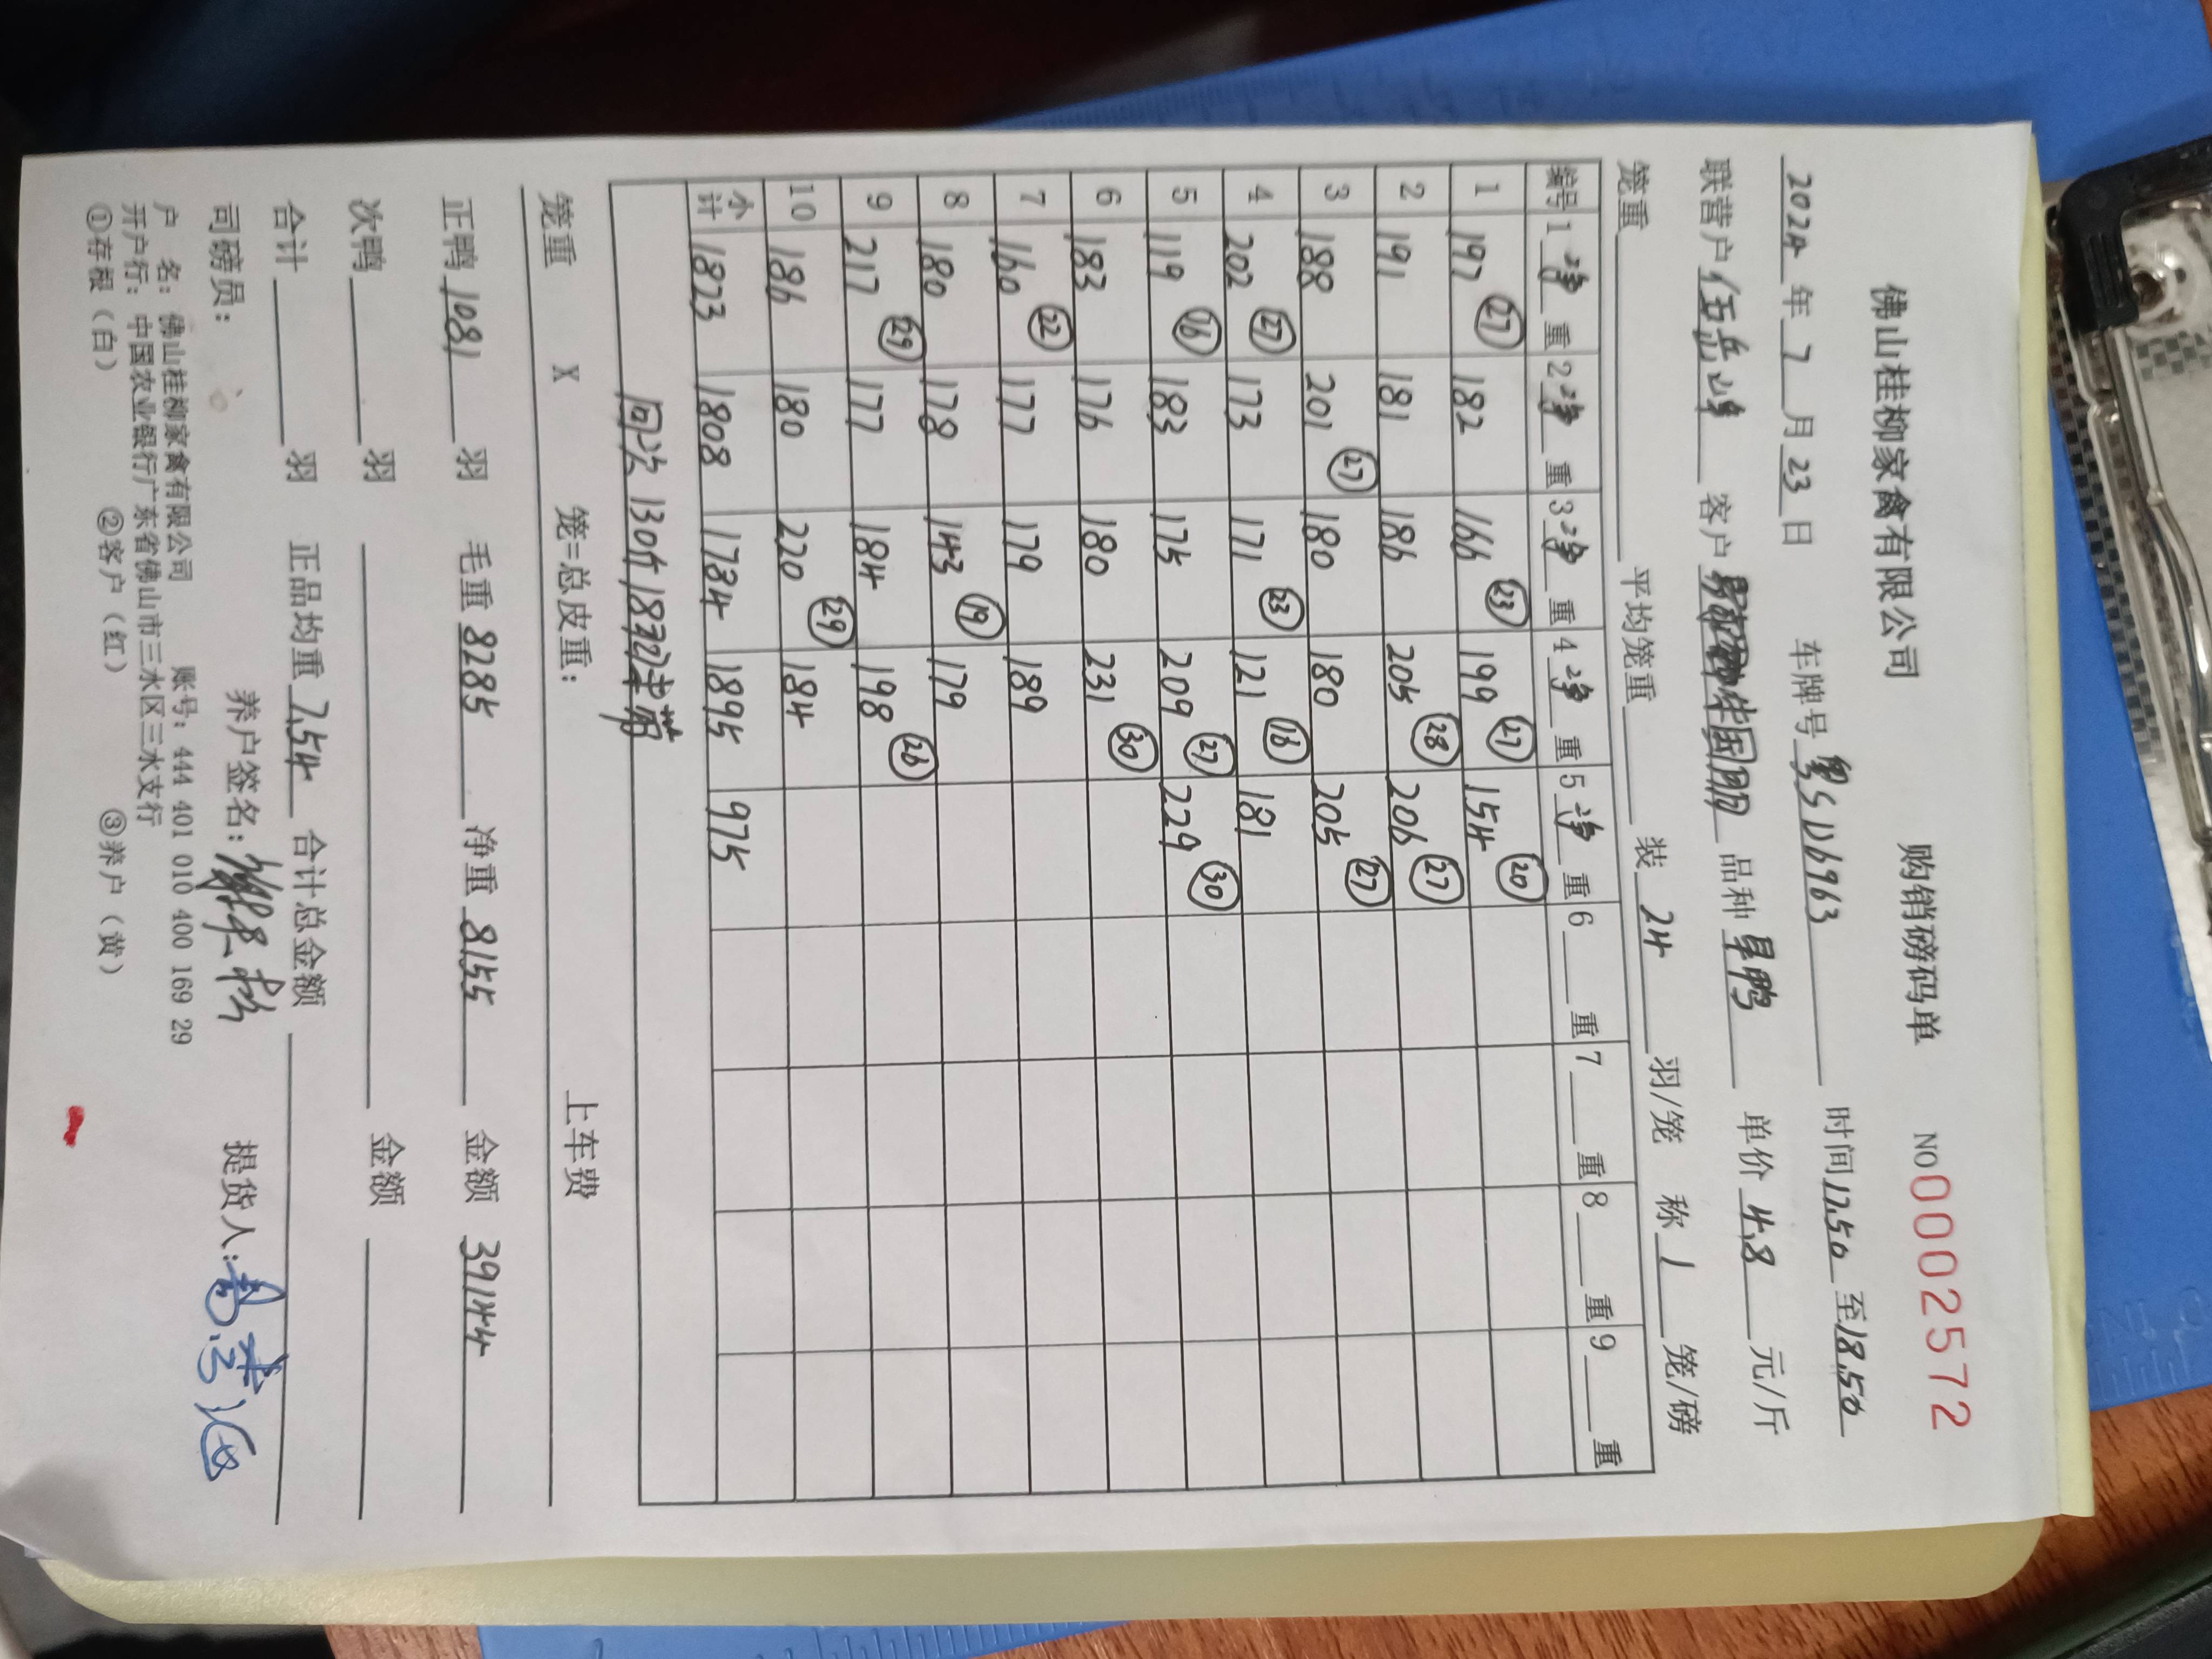 佛山桂柳家禽有限公司 购销磅码单 NO 0002572
2024 年 7 月 23 日 车牌号 粤SD6963 时间 17.50 至 18.50
联营户 伍岳峰 客户 品种 旱鸭 单价 4.8 元/斤
笼重 平均笼重 装 24 羽/笼 称 1 笼/磅
编号 1 净 重 2 净 重 3 净 重 4 净 重 5 净 重 6 重 7 重 8 重 9 重
1 197 (27) 182 166 (23) 199 (27) 154 (20)
2 191 181 186 205 (28) 206 (27)
3 188 201 (27) 180 180 205 (27)
4 202 (27) 173 171 (23) 121 (16) 181
5 119 (16) 183 175 209 (27) 229 (30)
6 183 176 180 231 (30)
7 160 (22) 177 179 189
8 180 178 143 (19) 179
9 217 (29) 177 184 198 (26)
10 186 180 220 (29) 184
小计 1823 1808 1784 1895 975
130斤
笼重 X 笼=总皮重: 上车费
正鸭 1081 羽 毛重 8285 净重 8155 金额 39144
次鸭 羽 金额
合计 羽 正品均重 7.54 合计总金额
司磅员: 养户签名: 提货人:
户 名: 佛山桂柳家禽有限公司 账号: 444 401 010 400 169 29
开户行: 中国农业银行广东省佛山市三水区三水支行
①存根(白) ②客户(红) ③养户(黄)